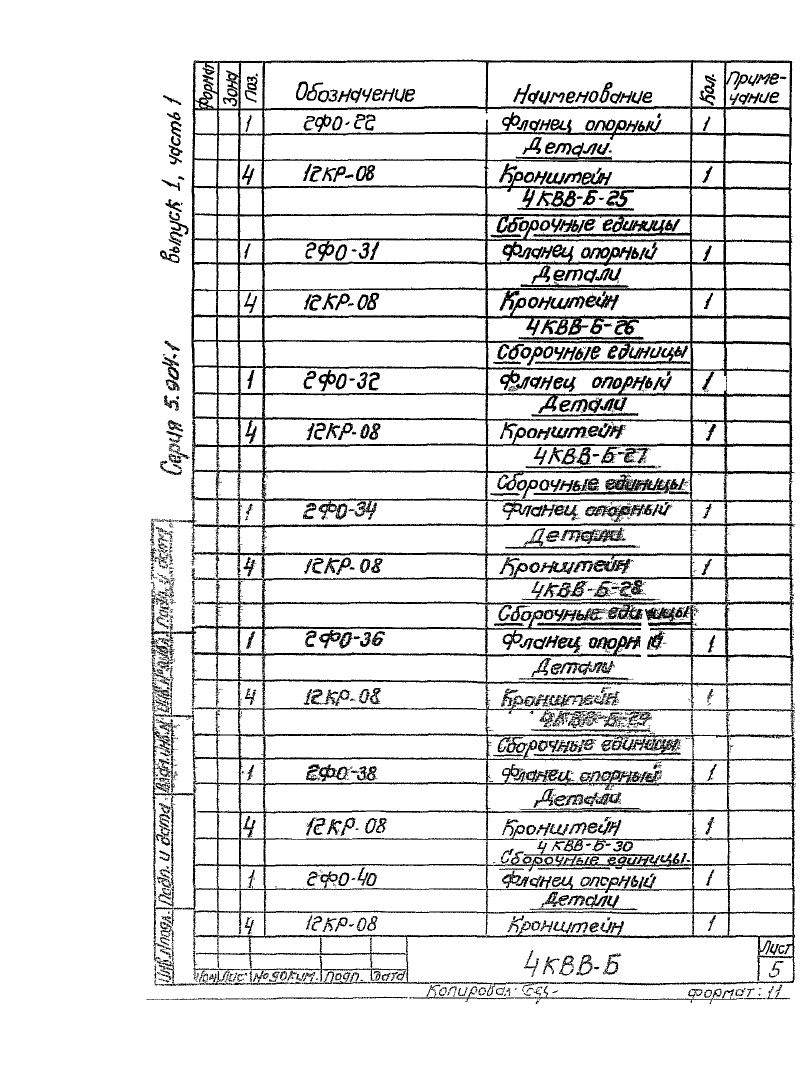 Формат Зона Поз. Обозначение Наименование Кол. Приме-
чание
1 2ФО-22 Фланец опорный 1
Детали.
4 12КР-08 Кронштейн 1
4КВВ-Б-25
Сборочные единицы
1 2ФО-31 Фланец опорный 1
Детали
4 12КР-08 Кронштейн 1
4КВВ-Б-26
Сборочные единицы
1 2ФО-32 Фланец опорный 1
Детали
4 12КР-08 Кронштейн 1
4КВВ-Б-27
Сборочные единицы
1 2ФО-34 Фланец опорный 1
Детали.
4 12КР-08 Кронштейн 1
4КВВ-Б-28
Сборочные единицы
1 2ФО-36 Фланец 1
Детали
4 12КР-08 Кронштейн 1
4КВВ-Б-29
Сборочные единицы
1 2ФО-38 Фланец опорный 1
Детали
4 12КР-08 Кронштейн 1
4КВВ-Б-30
Сборочные единицы.
1 2ФО-40 Фланец опорный 1
Детали
4 12КР-08 Кронштейн 1
Серия 5.904-1 Выпуск 1, часть 1
Инв.№подл. Подп. и дата Взам.инв.№ Подп. и дата
Изм Лис № докум. Подп. Дата
4КВВ-Б
Лист
5
Копировал: формат: 11